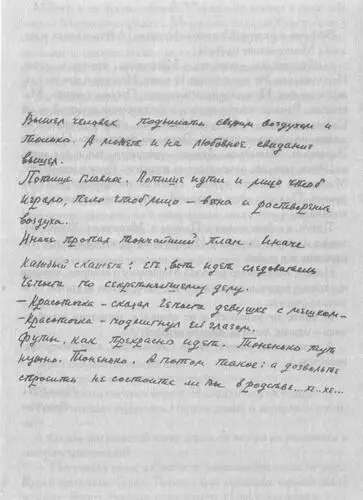 Вышел человек подышать свежим воздухом и
только. А может и на любовное свидание
вышел.
Потише главное. Потише идти и лицо чтоб
играло, тело чтоб лицо – весна и растворение
воздуха.
Иначе пропал тончайший план. Иначе
каждый скажет: эге, вота идет следователь
Чепыга по секретнейшему делу.
– Красоточка – сказал Чепыга девушке с мешком –
– Красоточка – подмигнул ей глазом.
Футы, как прекрасно идет. Тоненько тут
нужно. Тоненько. А потом такое: а дозвольте
спросить не состоите ли вы в родстве... хе.. хе...